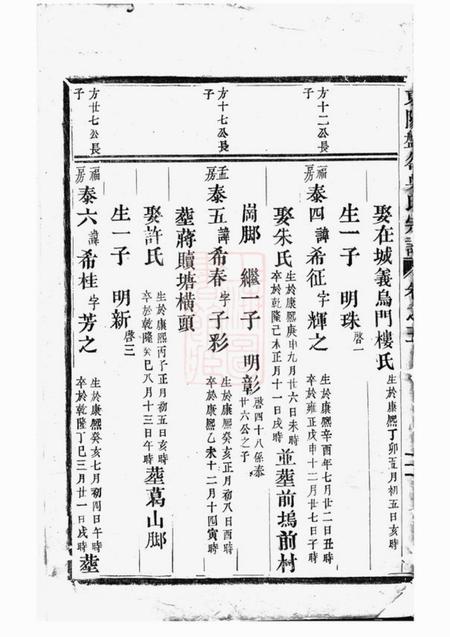 東陽盤谷吳氏宗譜 卷之五
娶在城義烏門樓氏 生於康熙丁卯五月初五日亥時
生一子 明珠 啓一
方十二公長子
福房 泰四 諱希征 字輝之 生於康熙辛酉年七月廿二日丑時 卒於雍正戊申十二月廿七日子時
娶朱氏 生於康熙庚申九月廿六日未時 卒於乾隆己未正月十一日戌時 並塟前塢前村
崗脚 繼一子 明彰 啓四十八係泰廿六公之子
方十七公長子
孟房 泰五 諱希春 字子彩 生於康熙癸亥正月初八日酉時 卒於康熙乙未十二月十四寅時
塟蔣贖塘橫頭
娶許氏 生於康熙丙子正月初五日亥時 卒於乾隆癸巳八月十三日午時 塟葛山脚
生一子 明新 啓三
方廿七公長子
福房 泰六 諱希桂 字芳之 生於康熙癸亥七月初四日午時 卒於乾隆丁巳三月廿一日戌時 塟